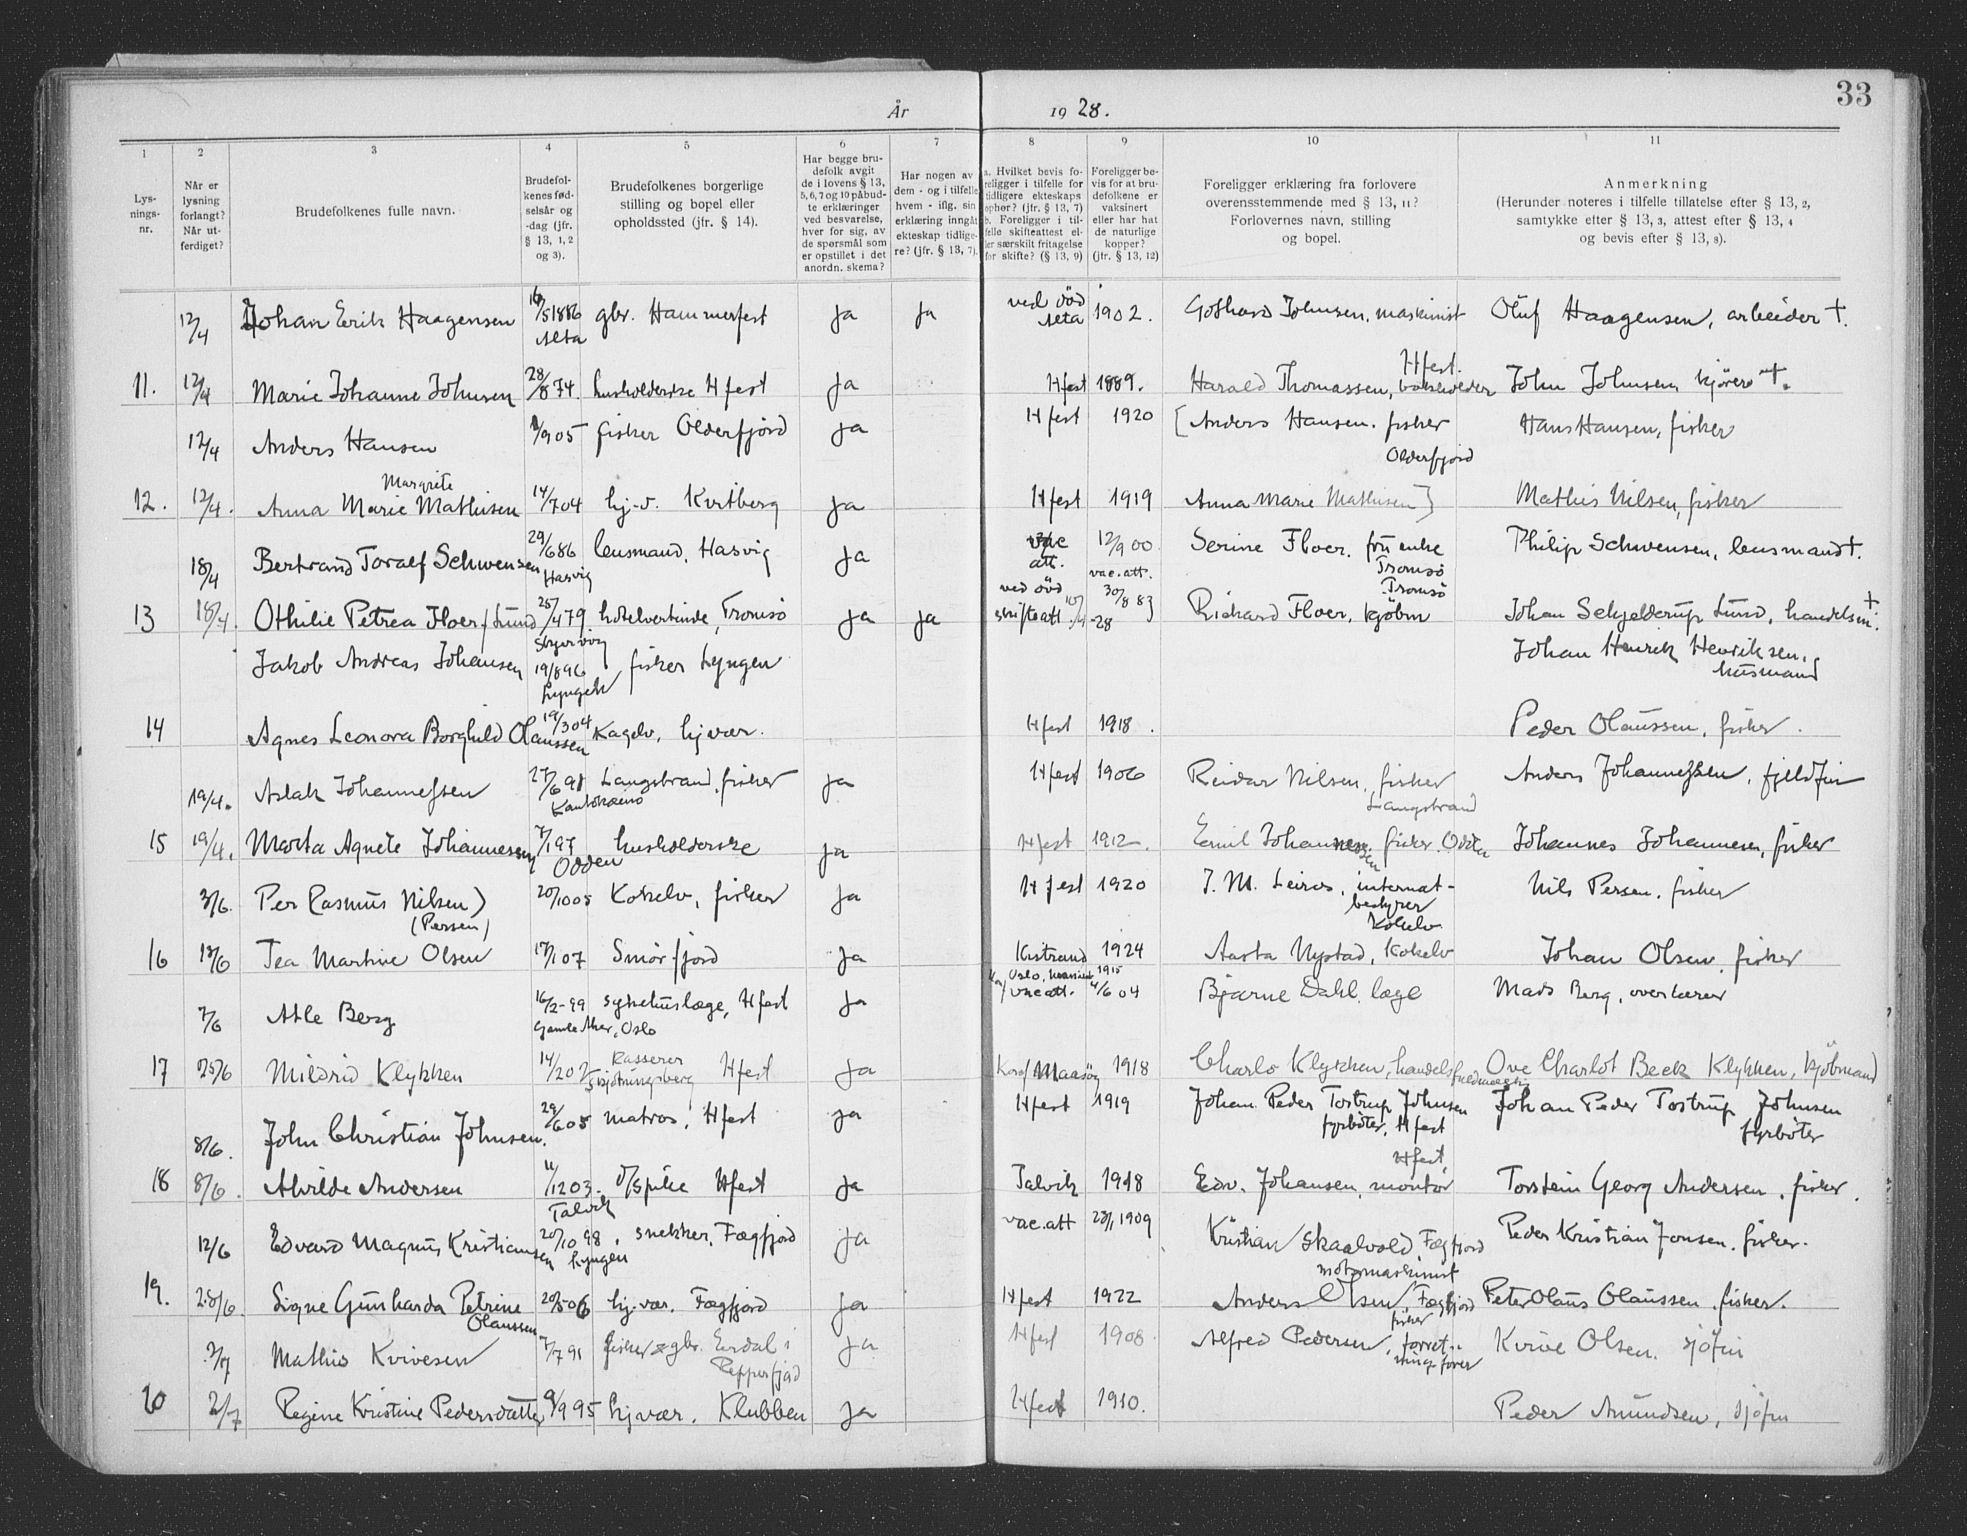 33
År 1928.
1 2 3 4 5 6 7 8 9 10 11
Lysnings-nr.
Når er lysning forlangt? Når utferdiget?
Brudefolkenes fulle navn.
Brudefolkenes fødselsår og -dag (jfr. § 13, 1, 2 og 3).
Brudefolkenes borgerlige stilling og bopel eller opholdssted (jfr. § 14).
Har begge brudefolk avgit de i lovens § 13, 5, 6, 7 og 10 påbudte erklæringer ved besvarelse, hver for sig, av de spørsmål som er opstillet i det anordn. skema?
Har nogen av dem - og i tilfelle hvem - iflg. sin erklæring inngått ekteskap tidligere? (jfr. § 13, 7).
a. Hvilket bevis foreligger i tilfelle for tidligere ekteskaps ophør? (jfr. § 13, 7) b. Foreligger i tilfelle skifteattest eller særskilt fritagelse for skifte? (§ 13, 9)
Foreligger bevis for at brudefolkene er vaksinert eller har hat de naturlige kopper? (jfr. § 13, 12)
Foreligger erklæring fra forlovere overensstemmende med § 13, 11? Forlovernes navn, stilling og bopel.
Anmerkning (Herunder noteres i tilfelle tillatelse efter § 13, 2, samtykke efter § 13, 3, attest efter § 13, 4 og bevis efter § 13, 8).
12/4 Johan Erik Haagensen 16/5 1886 Alta gbr. Hammerfest Ja Ja ved död Alta 1902. Gothard Johnsen, maskinist Hfest. Oluf Haagensen, arbeider †.
11. 12/4 Marie Johanne Johnsen 28/8 74. husholderske Hfest Ja Hfest 1889. Harald Thomassen, John Johnsen, kjörer †.
12/4 Anders Hansen /9 05 fisker Olderfjord Ja Hfest 1920 [Anders Hansen. fisker Olderfjord Hans Hansen, fisker
12. 12/4. Anna Marie Margrete Mathisen 14/7 04 hj.v. Kvitberg Ja Hfest 1919 Anna Marie Mathisen] Mathis Nilsen, fisker
18/4 Bertrand Toralf Schwensen 29/6 86 Hasvig lensmand, Hasvig Ja vac att. 12/9 00 vac. att. Serine Floer. fru enke Tromsö Philip Schwensen, lensmand †.
13 18/4. Othilie Petrea Floer f. Lund 25/4 79 hotelvertinde, Tromsö Ja Ja ved död skifteatt -28 30/8 83 Richard Floer, kjöbm Tromsö Johan Schjelderup Lund, handelsm. †
Jakob Andreas Johansen 19/8 96 Lyngen fisker Lyngen Johan Henrik Henriksen, husmand
14 Agnes Leonora Borghild Olaussen 19/3 04 Kagelv, hj vær. Hfest 1918. Peder Olaussen, fisker.
19/4. Aslak Johannessen 27/6 98 Kautokeino Langstrand. fisker Ja Hfest 1906 Reidar Nilsen, fisker Langstrand Anders Johannessen, fjeldfin
15 19/4. Marta Agnete Johannessen 7/1 97 Odden husholderske Ja Hfest 1912. Emil Johannessen, fisker. Odden Johannes Johannesen, fisker
3/6. Per Rasmus Nilsen) (Persen) 20/10 05 Kokelv, fisker Ja Hfest 1920 J. M. Leiros, internat-bestyrer Kokelv Nils Persen. fisker
16 18/6 Tea Martine Olsen 17/1 07 Smörfjord Ja Kistrand 1924 Aasta Nystad, Kokelv Johan Olsen. fisker
7/6 Atle Berg 16/2-99 Gamle Aker, Oslo sykehuslæge, Hfest Ja Oslo, 1915 vac att. 4/6 04 Bjarne Dahl, læge Mads Berg, overlærer
17 25/6 Mildrid Klykken 14/2 07 kasserer Hfest Ja Maasöy 1918 Charlo Klykken, handelsfuldmægtig Ove Charlot Beck Klykken, kjöbmand
8/6. John Christian Johnsen. 29/6 05 matros, Hfest Ja Hfest 1919 Johan Peder Tostrup Johnsen fyrböter, Hfest Johan Peder Tostrup Johnsen fyrböter
18 8/6. Alvilde Andersen 11/12 03. Talvik pike Hfest Ja Talvik 1918 Edv. Johansen, montör Hfest Torstein Georg Andersen. fisker.
12/6 Edvard Magnus Kristiansen 20/10 98. Lyngen snekker, Fægfjord Ja vac. att 23/1 1909 Kristian Skaalvold, Fægfjord motormaskinist Peder Kristian Jonsen. fisker.
19. 28/6. Signe Gunharda Petrine Olaussen 20/5 06 hj. vær. Fægfjord Ja Hfest 1922 Anders Olsen, Fægfjord fisker Peter Olaus Olaussen. fisker.
2/7 Mathis Kvivesen 7/7 91 fisker & gbr. Erdal i Repparfjord Ja Hfest 1908. Alfred Pedersen, forretningsförer Kvive Olsen. sjöfin
20 2/7 Regine Kristine Pedersdatter 9/9 95 hj vær. Klubben Ja Hfest 1910. Peder Amundsen, sjöfin